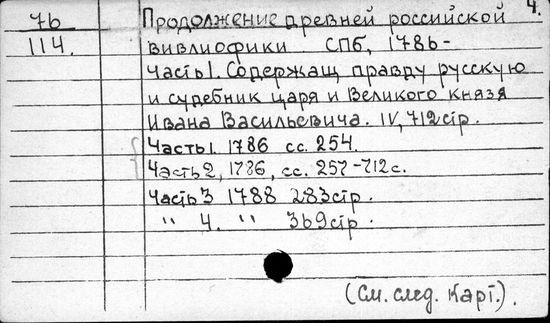 4.
76 Продолжение древней российской
114. вивлиофики СПб, 1786-
Часть 1. Содержащ правду русскую
и судебник царя и Великого князя
Ивана Васильевича. IV, 712 стр.
Часть 1. 1786 сс. 254.
Часть 2, 1786, сс. 257-712 с.
Часть 3 1788 283 стр.
" 4. " 369 стр.
(См. след. карт.).